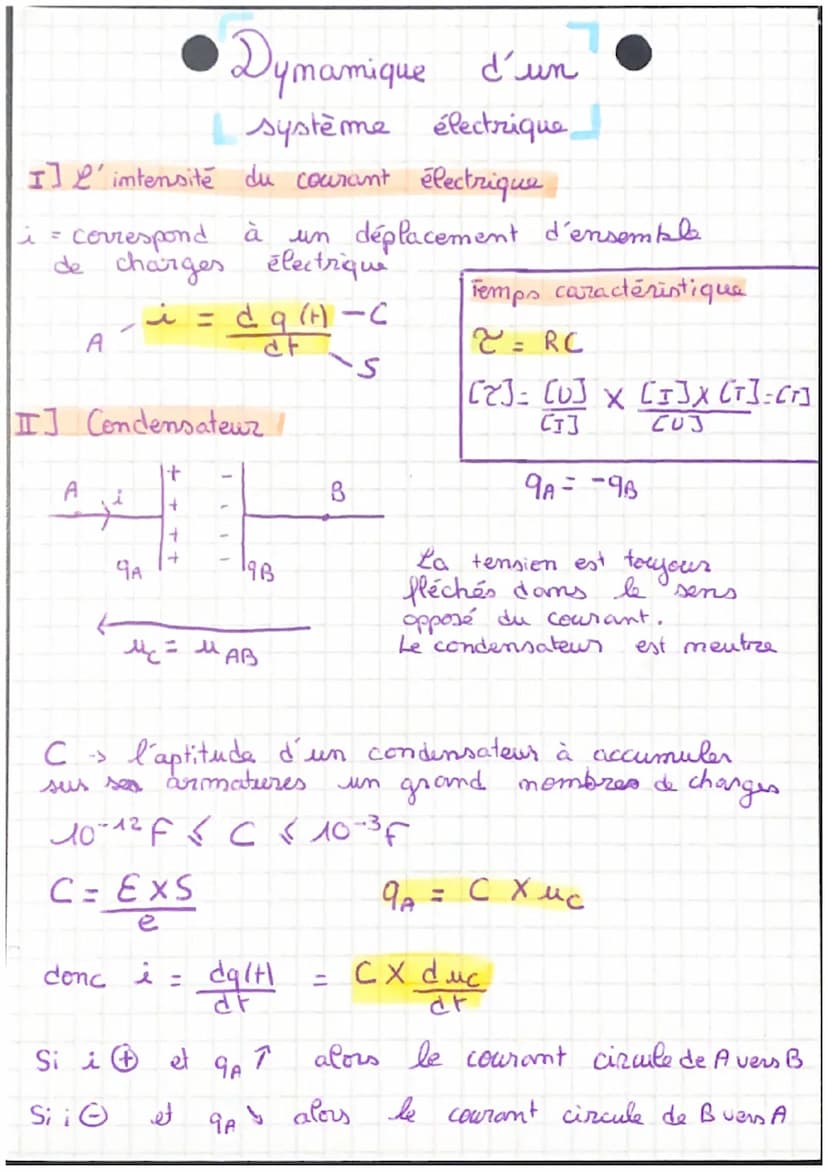 Dynamique d'un
système électrique
I] L'intensité du courant électrique
i = correspond à un déplacement d'ensemble
de charges électrique
A i = dq(t)/dt C
S
Temps caractéristique
τ = RC
[τ] = [U]/[I] × [I]×[T]/[U] = [T]
II] Condensateur
A i + + + + - - - - B
qA qB
uc = uAB
qA = -qB
La tension est toujour
fléchés dans le sens
opposé du courant.
Le condensateur est neutre
C → l'aptitude d'un condensateur à accumuler
sur ses armatures un grand nombres de charges
10⁻¹²F ≤ C ≤ 10⁻³F
C = E×S/e
qA = C × uc
donc i = dq(t)/dt = C × duc/dt
Si i ⊕ et qA ↑ alors le courant circule de A vers B
Si i ⊖ et qA ↘ alors le courant circule de B vers A